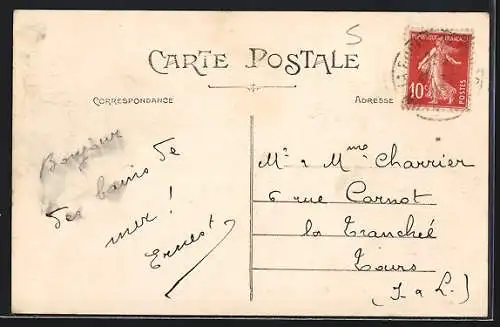 5
CARTE POSTALE
CORRESPONDANCE
ADRESSE
REPUBLIQUE FRANÇAISE
10c
POSTES
Bonjour
des bains de
mer !
Ernest
Mr & Mme Charrier
6 rue Carnot
la Tranchée
Tours
(I & L.)